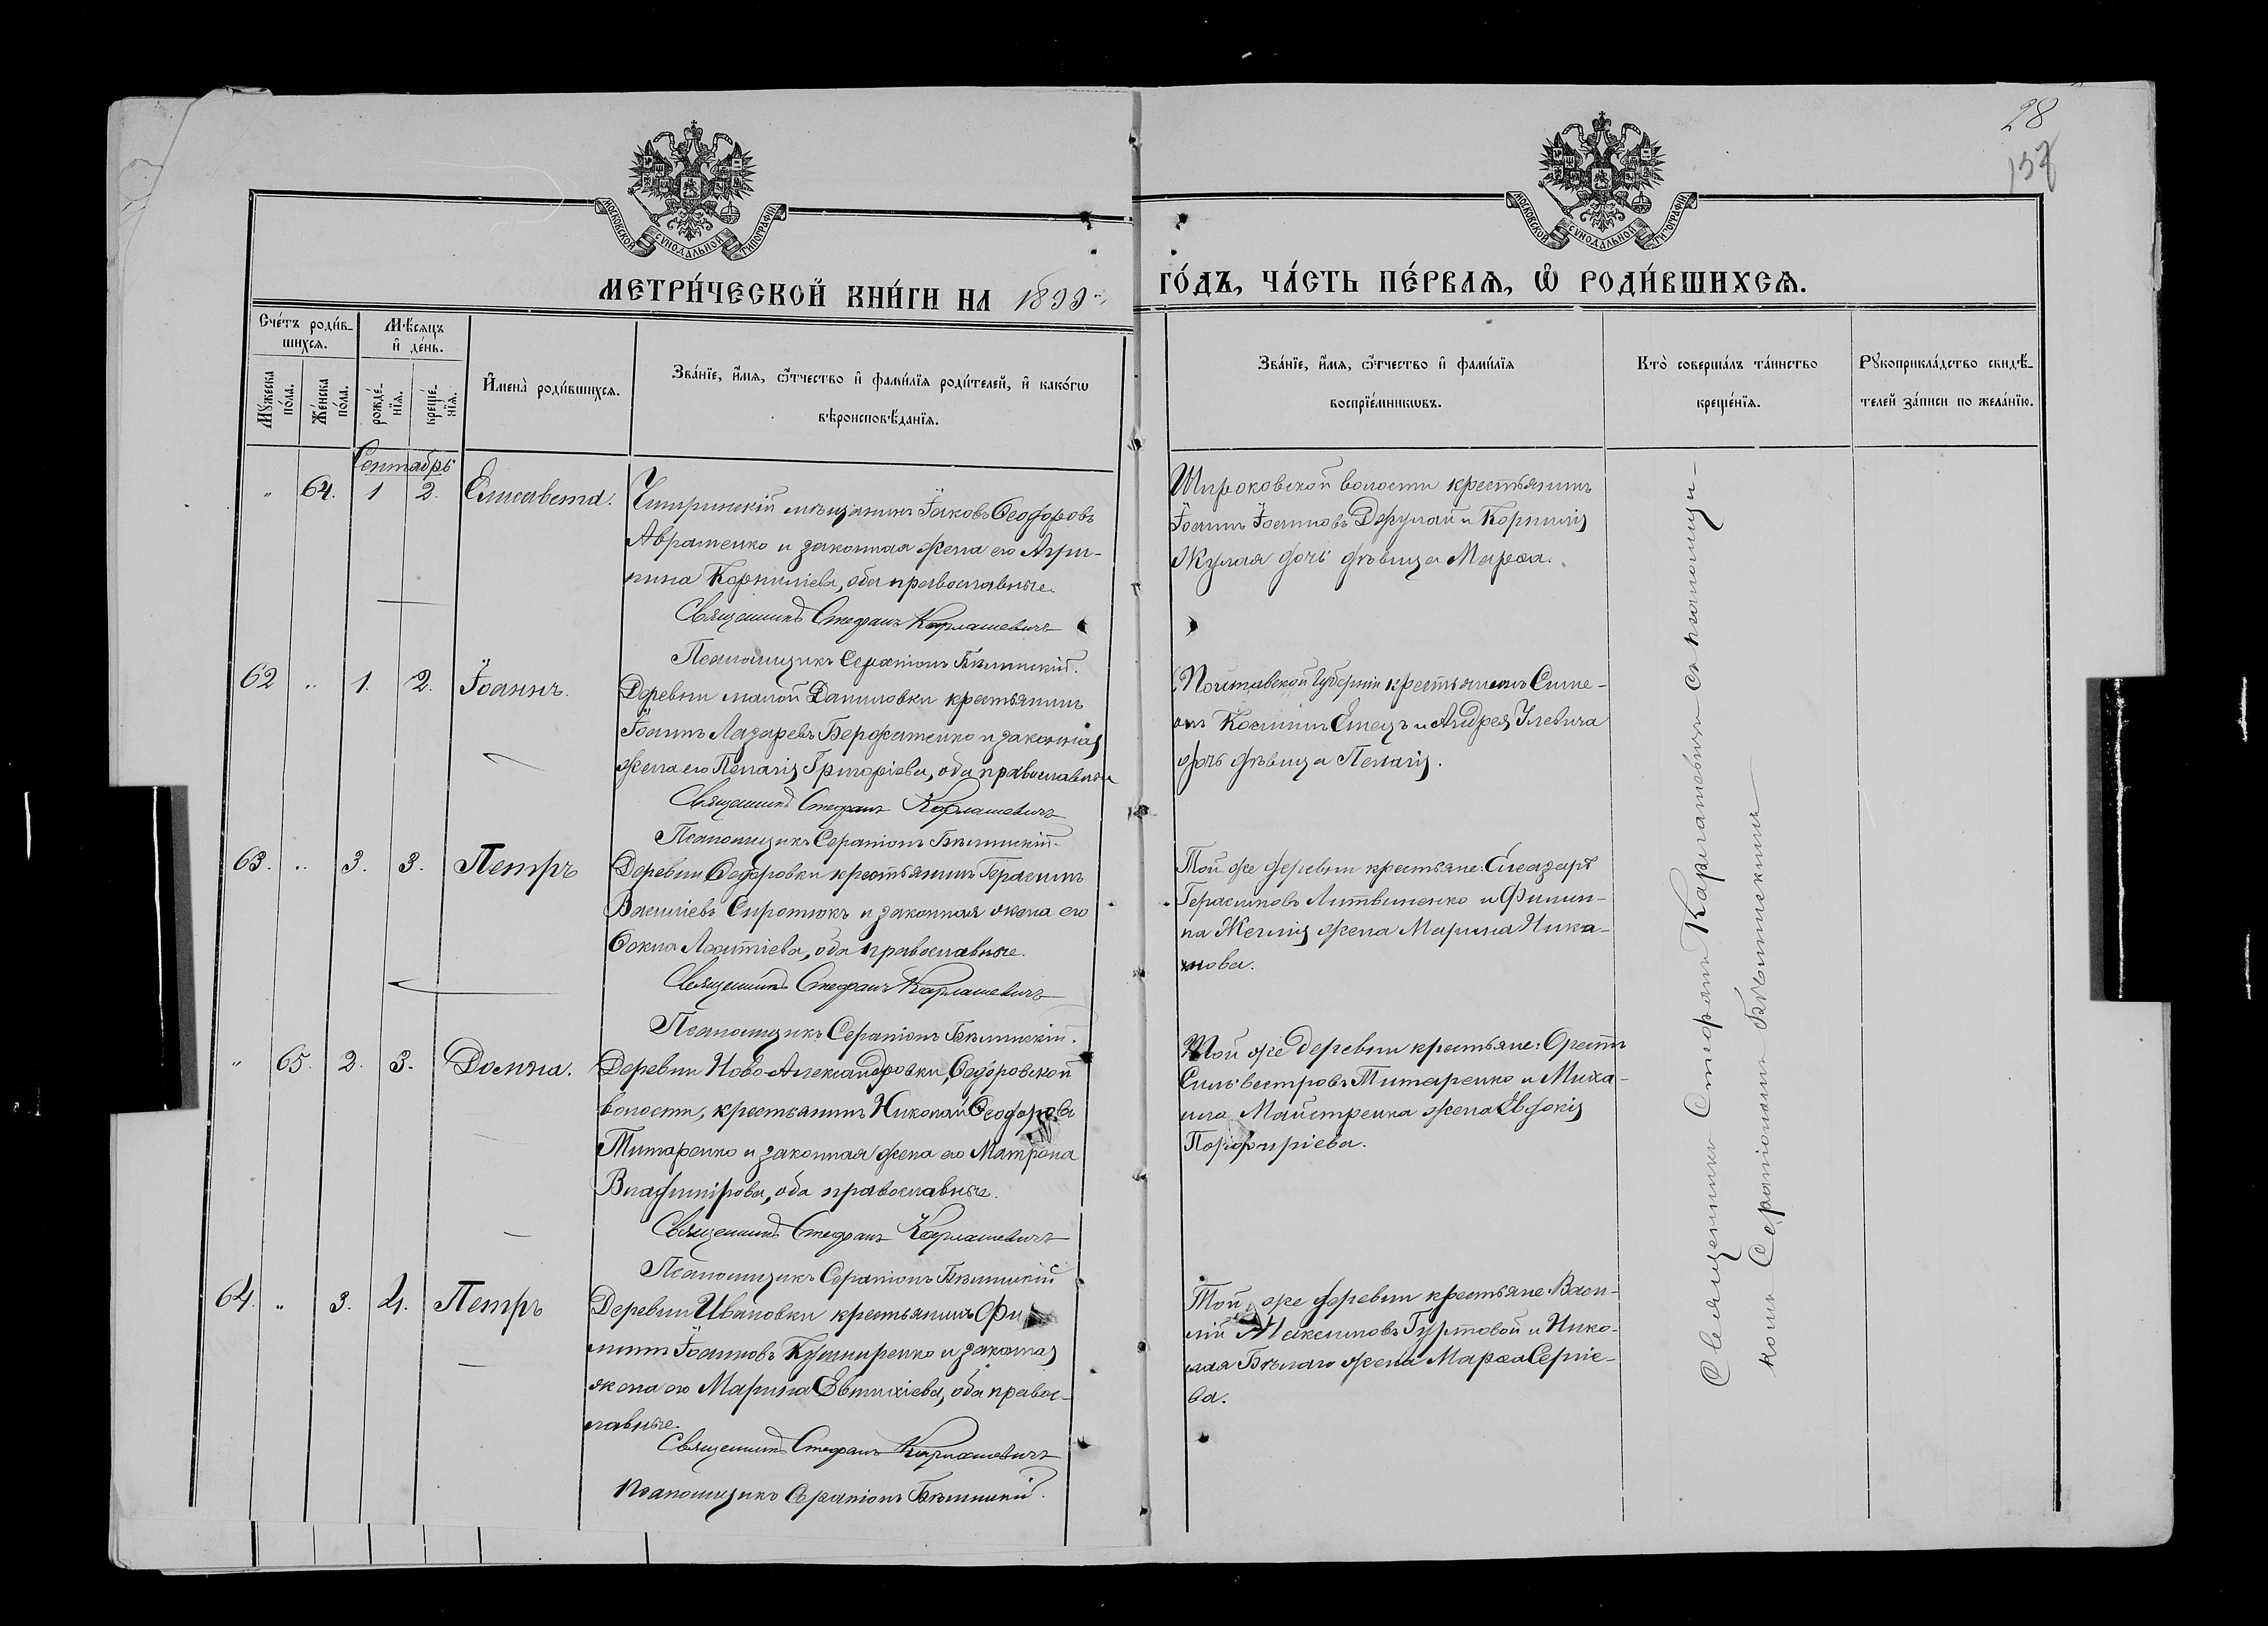 28
137
МОСКОВСКОЙ СУНОДАЛЬНОЙ ТИПОГРАФІИ
МОСКОВСКОЙ СУНОДАЛЬНОЙ ТИПОГРАФІИ
МЕТРИ́ЧЕСКОЙ КНИ́ГИ НА 1899
ГО́ДЪ, ЧА́СТЬ ПЕ́РВАѦ, Ѡ҆ РОДИ́ВШИХСѦ.
Сче́тъ роди́в-
шихсѧ.
Мѣ́сѧцъ
и҆ де́нь.
Мꙋ́жеска
по́ла.
Же́нска
по́ла.
рожде́-
нїѧ.
креще́-
нїѧ.
И҆мена̀ роди́вшихсѧ.
Зва́нїе, и҆́мѧ, ѻ҆́тчество и҆ фами́лїѧ роди́телей, и҆ како́гѡ
вѣроисповѣ́данїѧ.
Зва́нїе, и҆́мѧ, ѻ҆́тчество и҆ фами́лїѧ
воспрїе́мникѡвъ.
Кто̀ соверша́лъ та́инство
креще́нїѧ.
Рꙋкоприкла́дство свидѣ́-
телей за́писи по жела́нїю.
Сентябрь
" 64. 1 2. Елисавета.
Чигринскій мѣщанинъ Іаковъ Ѳеодоровъ
Авраменко и законная жена его Агри-
пина Корниліева, оба православные.
Священникъ Стефанъ Карлашевичъ
Псаломщикъ Серапіонъ Бѣлинскій.
Широковской волости крестьянинъ
Іоаннъ Іоанновъ Джулай и Корнилія
Жулая дочь дѣвица Марѳа.
62 " 1. 2. Іоаннъ.
Деревни малой Даниловки крестьянинъ
Іоаннъ Лазаревъ Бережатенко и законная
жена его Пелагія Григоріева, оба православные
Священникъ Стефанъ Карлашевичъ
Псаломщикъ Серапіонъ Бѣлинскій.
Полтавской Губерніи крестьянинъ Симе-
онъ Косминъ Емецъ и Андрея Улевича
дочь дѣвица Пелагія.
63. " 3. 3. Петръ
Деревни Ѳедоровки крестьянинъ Герасимъ
Василіевъ Сиротюкъ и законная жена его
Ѳекла Леонтіева, оба православные.
Священникъ Стефанъ Карлашевичъ
Псаломщикъ Серапіонъ Бѣлинскій.
Той же деревни крестьяне: Елеазаръ
Герасимовъ Литвиненко и Филип-
па жена Марина Ника-
нова.
" 65. 2. 3. Домна.
Деревни Ново-Александровки, Ѳедоровской
волости, крестьянинъ Николай Ѳеодоровъ
Титаренко и законная жена его Матрона
Владимірова, оба православные.
Священникъ Стефанъ Карлашевичъ
Псаломщикъ Серапіонъ Бѣлинскій
Той же деревни крестьяне: Орестъ
Сильвестровъ Титаренко и Миха-
ила Майстренка жена Евдокія
Порфиріева.
64. " 3. 4. Петръ
Деревни Ивановки крестьянинъ Фи
липпъ Іоанновъ Кушниренко и законная
жена его Марина Евтихіева, оба правос-
лавные.
Священникъ Стефанъ Карлашевичъ
Псаломщикъ Серапіонъ Бѣлинскій.
Той же деревни крестьяне Васи-
лій Максимовъ Гуртовой и Нико-
лая Бѣлаго жена Марѳа Сергіе-
ва.
Священникъ Стефанъ Карлашевичъ съ псаломщи-
комъ Серапіономъ Бѣлинскимъ